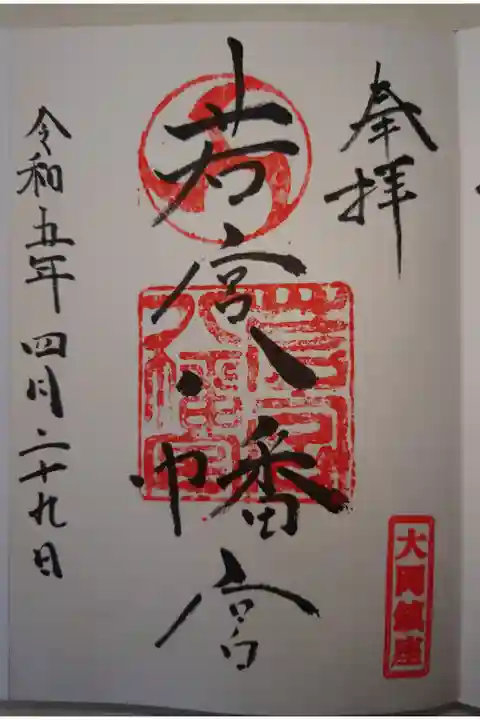 奉拝
大岡鎮座
若宮八幡宮
令和五年四月二十九日